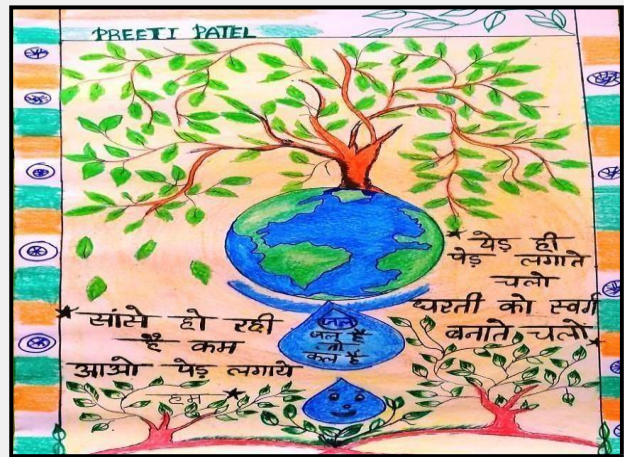 PREETI PATEL
* पेड़ ही
पेड़ लगाते
चलो
धरती को स्वर्ग
बनाते चलों *
* सांसे हो रही
है कम
आओ पेड़ लगाये
हम *
जल
जल है
तो
कल है